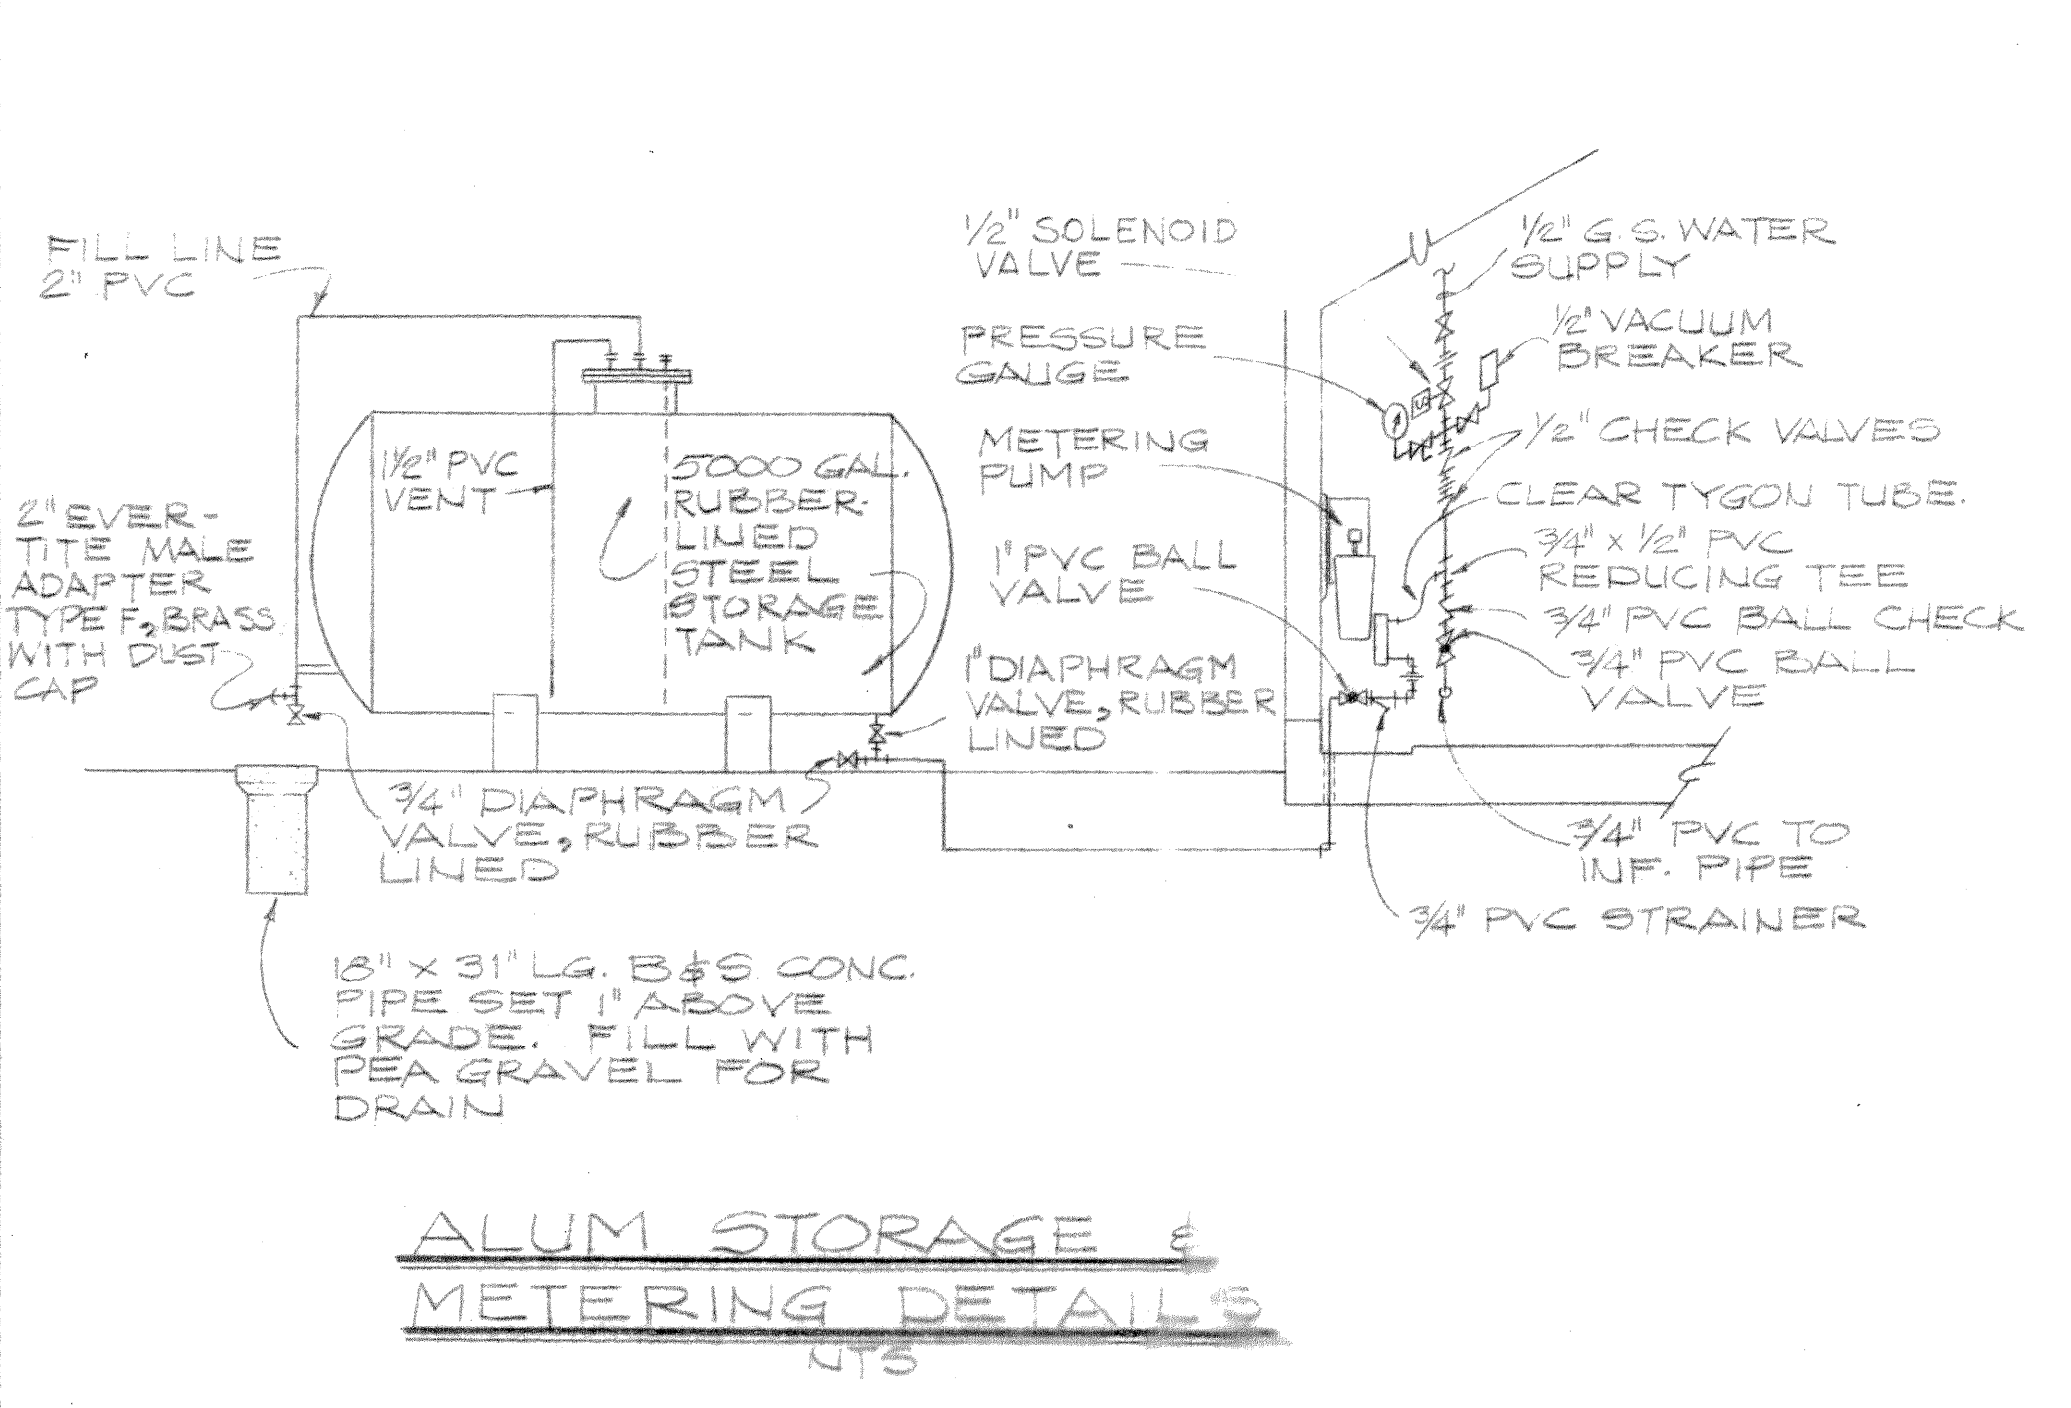 FILL LINE
2" PVC
2" EVER-
TITE MALE
ADAPTER
TYPE F, BRASS
WITH DUST
CAP
1½" PVC
VENT
5000 GAL.
RUBBER-
LINED
STEEL
STORAGE
TANK
3/4" DIAPHRAGM
VALVE, RUBBER
LINED
18" X 31" LG. B & S CONC.
PIPE SET 1" ABOVE
GRADE. FILL WITH
PEA GRAVEL FOR
DRAIN
1/2" SOLENOID
VALVE
PRESSURE
GAUGE
METERING
PUMP
1" PVC BALL
VALVE
1" DIAPHRAGM
VALVE, RUBBER
LINED
S
1/2" G.S. WATER
SUPPLY
1/2" VACUUM
BREAKER
1/2" CHECK VALVES
CLEAR TYGON TUBE.
3/4" x 1/2" PVC
REDUCING TEE
3/4" PVC BALL CHECK
3/4" PVC BALL
VALVE
3/4" PVC TO
INF. PIPE
3/4" PVC STRAINER
ALUM STORAGE &
METERING DETAILS
NTS